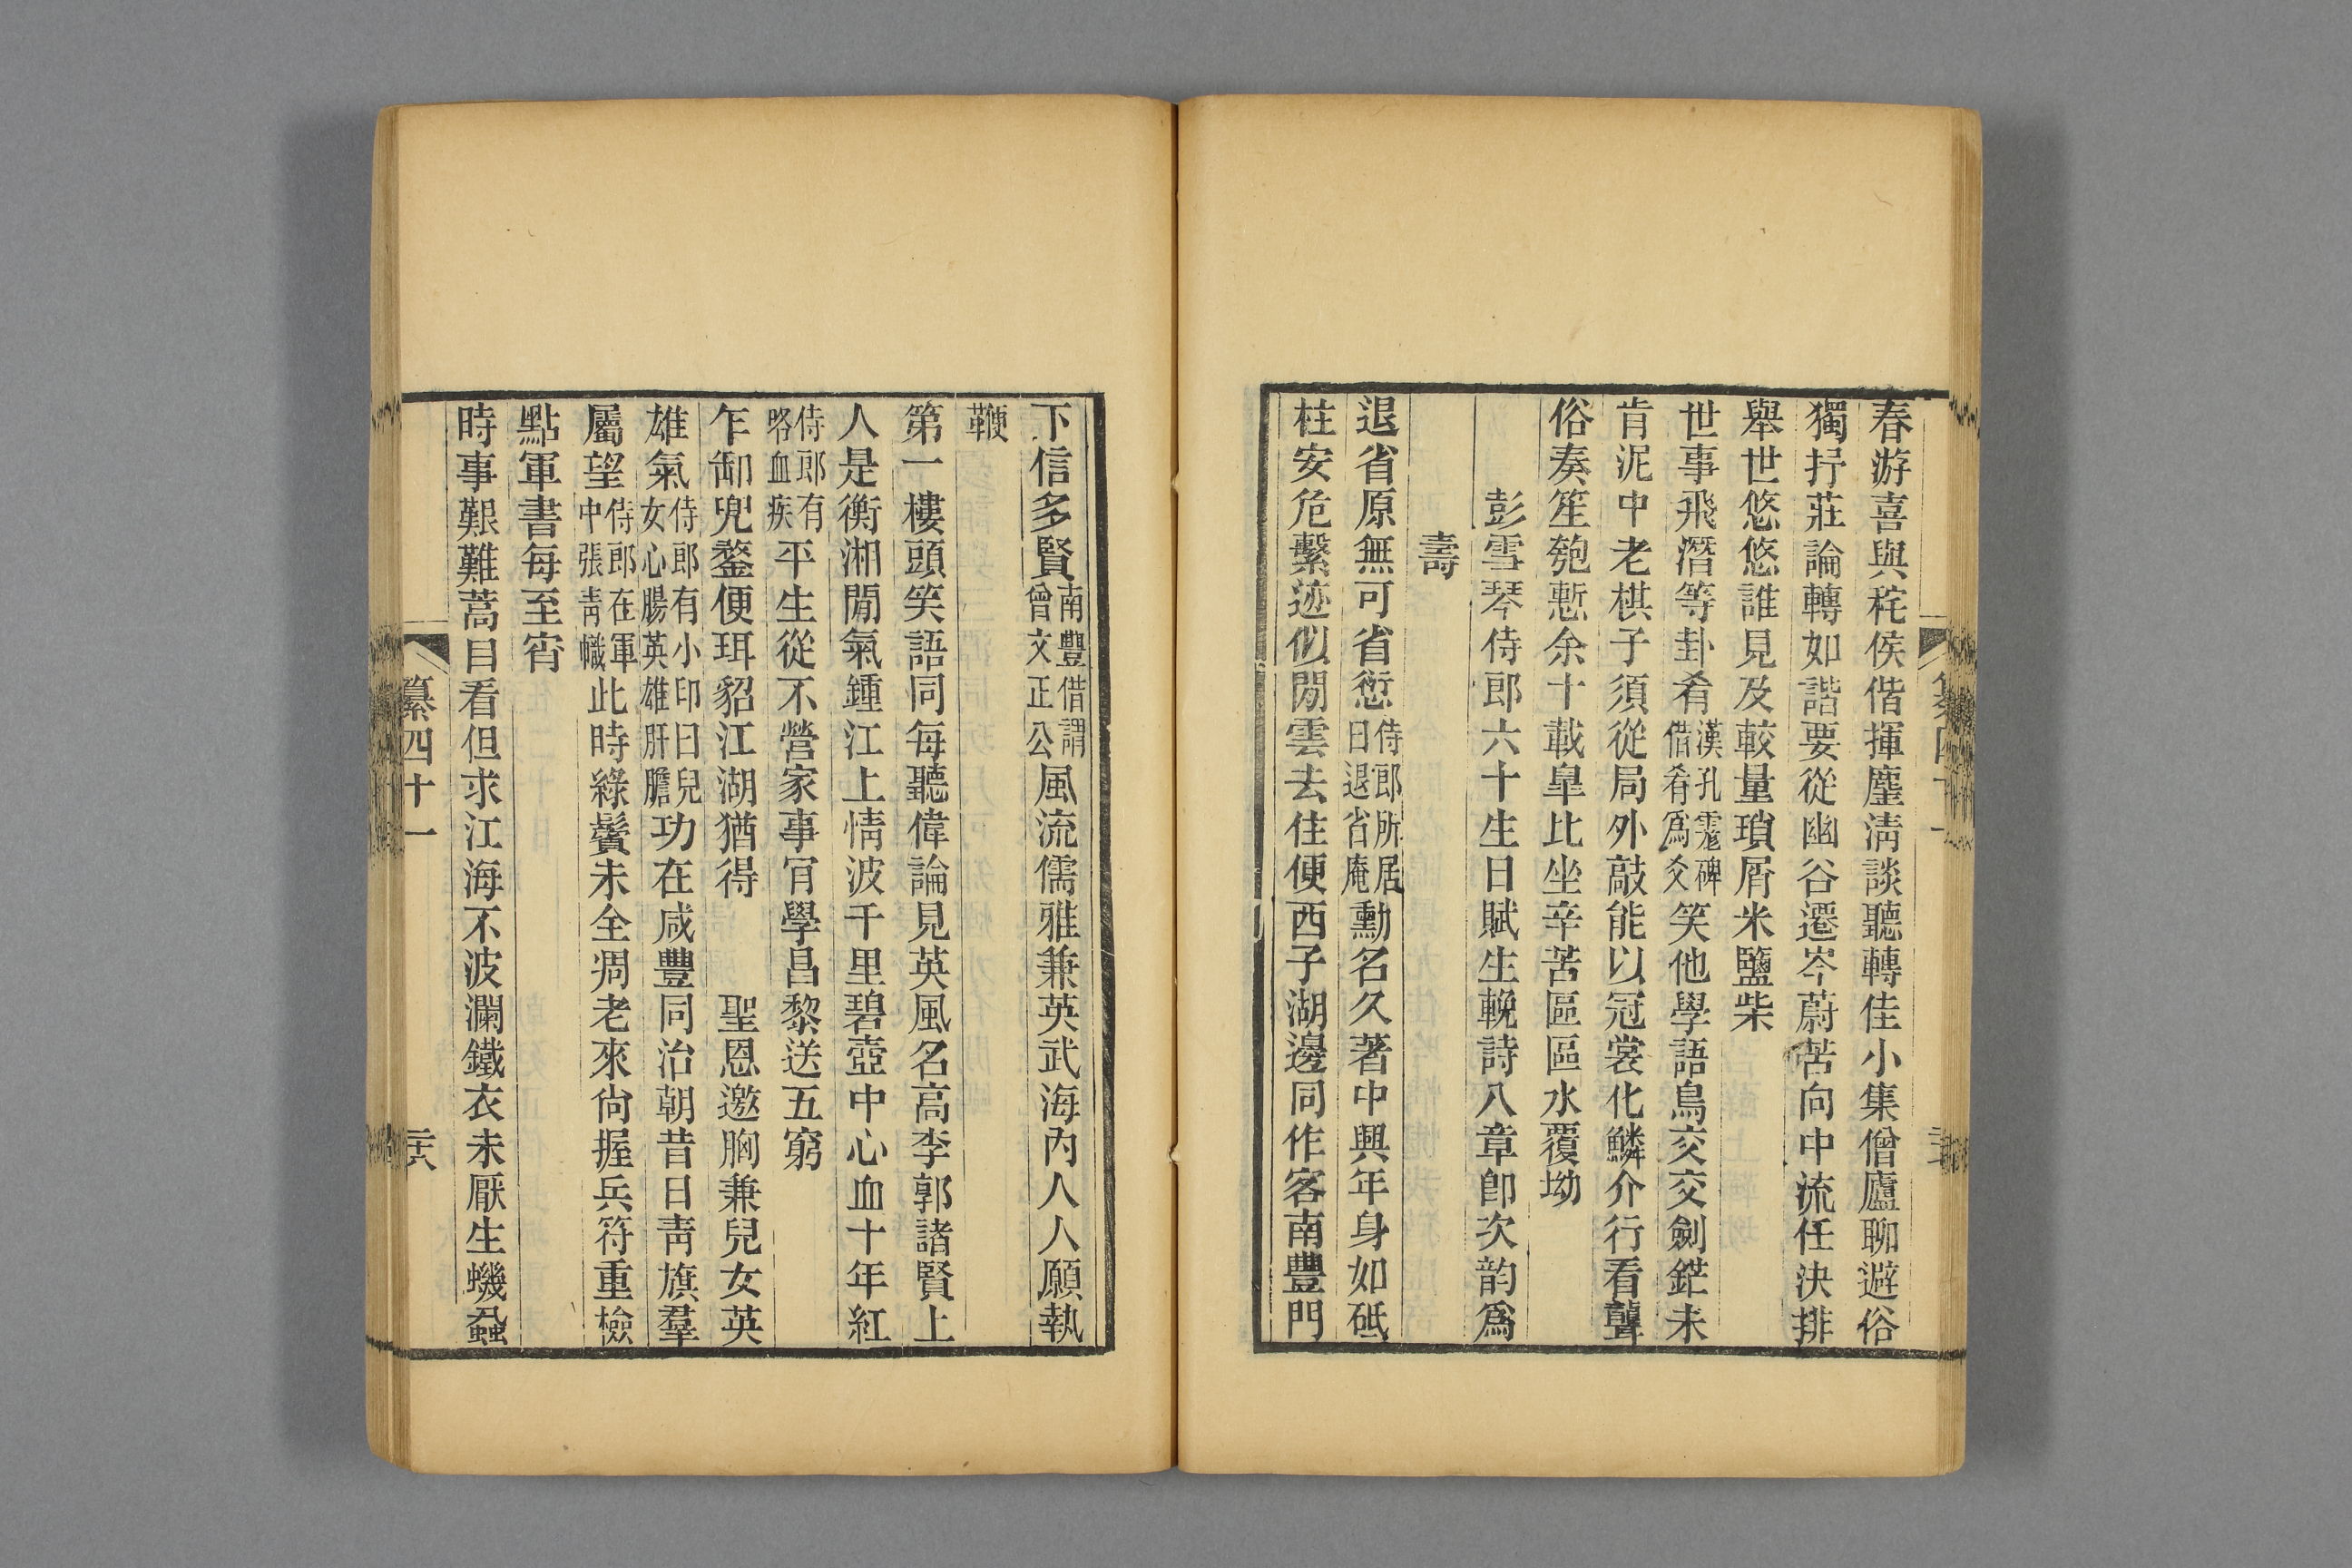 春游喜與秺侯偕揮麈淸談聽轉佳小集僧廬聊避俗
獨抒莊論轉如諧要從幽谷遷岑蔚苦向中流任決排
舉世悠悠誰見及較量瑣屑米鹽柴
世事飛潛等卦肴漢孔霳碑借肴爲爻笑他學語鳥交交劍鋩未
肯泥中老棋子須從局外敲能以冠裳化鱗介行看聾
俗奏笙匏慙余十載皐比坐辛苦區區水覆坳
彭雪琴侍郎六十生日賦生輓詩八章卽次韵爲
壽
退省原無可省愆侍郎所居曰退省庵勳名久著中興年身如砥
柱安危繫迹似閒雲去住便西子湖邊同作客南豐門
下信多賢南豐借謂曾文正公風流儒雅兼英武海內人人願執
鞭
第一樓頭笑語同每聽偉論見英風名高李郭諸賢上
人是衡湘閒氣鍾江上情波千里碧壺中心血十年紅
侍郎有咯血疾平生從不營家事肎學昌黎送五窮
乍卸兜鍪便珥貂江湖猶得聖恩邀胸兼兒女英
雄氣侍郎有小印曰兒女心腸英雄肝膽功在咸豐同治朝昔日靑旗羣
屬望侍郎在軍中張靑幟此時綠鬢未全凋老來尙握兵符重檢
點軍書每至宵
時事艱難蒿目看但求江海不波瀾鐵衣未厭生蟣蝨
纂四十一